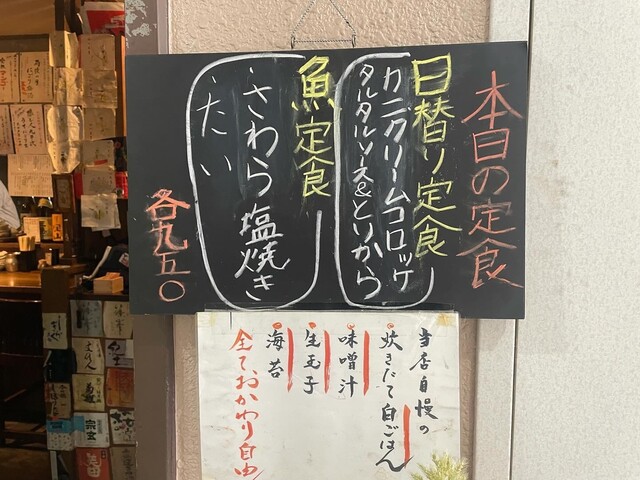 本日の定食
日替り定食
カニクリームコロッケ
タルタルソース&とりから
魚定食
・さわら塩焼き
・たい
各九五〇
当店自慢の
炊きたて白ごはん
味噌汁
生玉子
海苔
全ておかわり自由